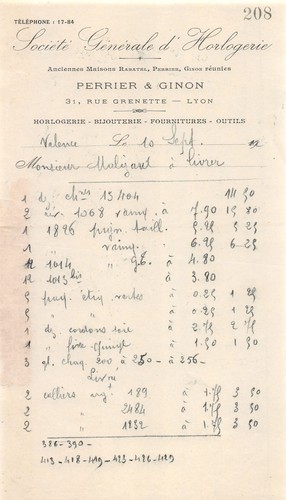 TÉLÉPHONE : 17-84
208
Société Générale d'Horlogerie
Anciennes Maisons Rabatel, Perrier, Ginon réunies
PERRIER & GINON
31, RUE GRENETTE — LYON
HORLOGERIE - BIJOUTERIE - FOURNITURES - OUTILS
Valence Le 10 Sept.
Monsieur à livrer
1 d; 15404 14 50
2 1068 à 7.90 15 80
1 1896 5.25 5 25
1 " 6.25 6-25
12 1014 à 4.80
12 1013 bis à 3.80
5 vertes à 0.25 1 25
5 " " à 0.25 1 25
1 dz cordons soie à 2.75 2 75
1 " à 1.50 1 50
3 gl. 200 à 250 - à 256 -
Livré
2 colliers arg^t 189 à 1.75 3 50
2 " 2484 à 1.75 3 50
2 " 1232 à 1.75 3 50
386 - 390 -
413 - 418 - 419 - 423 - 426 - 429